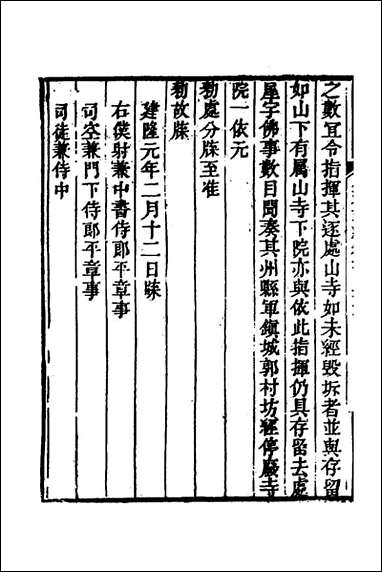 之數宜令指揮其逐處山寺如未經毀坼者並與存留
如山下有屬山寺下院亦與依此指揮仍具存留去處
屋字佛事數目聞奏其州縣軍鎮城郭村坊經停廢寺
院一依元
勑處分牒至准
勑故牒
建隆元年二月十二日牒
右僕射兼中書侍郎平章事
司空兼門下侍郎平章事
司徒兼侍中